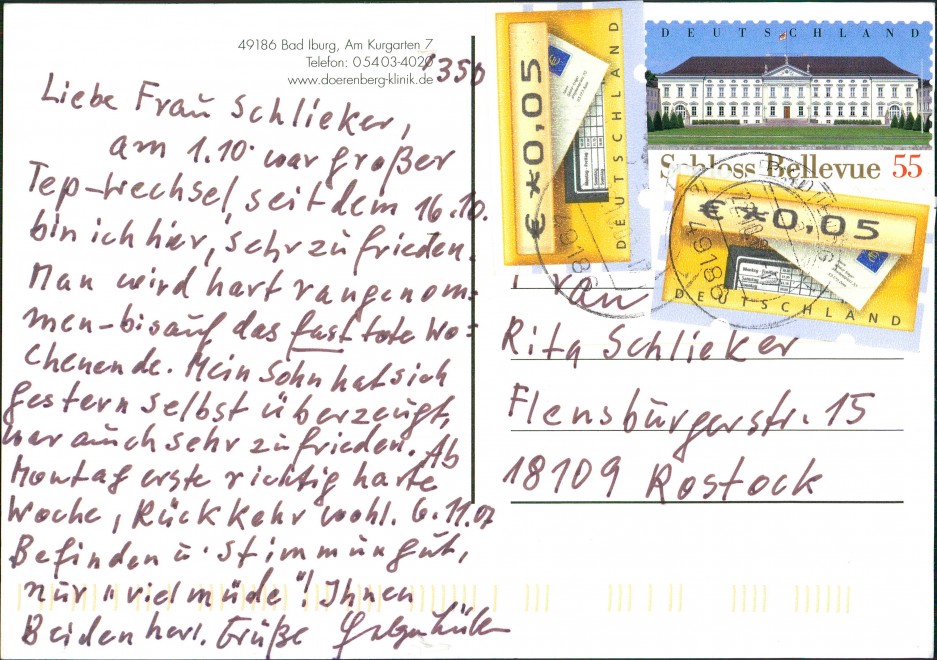 49186 Bad Iburg, Am Kurgarten 7
Telefon: 05403-4020
www.doerenberg-klinik.de
1350
Liebe Frau Schlieker,
am 1.10. war großer
Tep-Wechsel, seit dem 16.10.
bin ich hier, sehr zufrieden.
Man wird hart rangenom=
men-bis auf das fast tote Wo=
chenende. Mein Sohn hat sich
gestern selbst überzeugt,
war auch sehr zufrieden. Ab
Montag erste richtig harte
Woche, Rückkehr wohl. 6.11.07
Befinden u. Stimmung gut,
nur "viel müde"! Ihnen
Beiden herl. Grüße
€ *0,05
DEUTSCHLAND
DEUTSCHLAND
Schloss Bellevue 55
€ *0,05
DEUTSCHLAND
49186
49186
Frau
Rita Schlieker
Flensburgerstr. 15
18109 Rostock